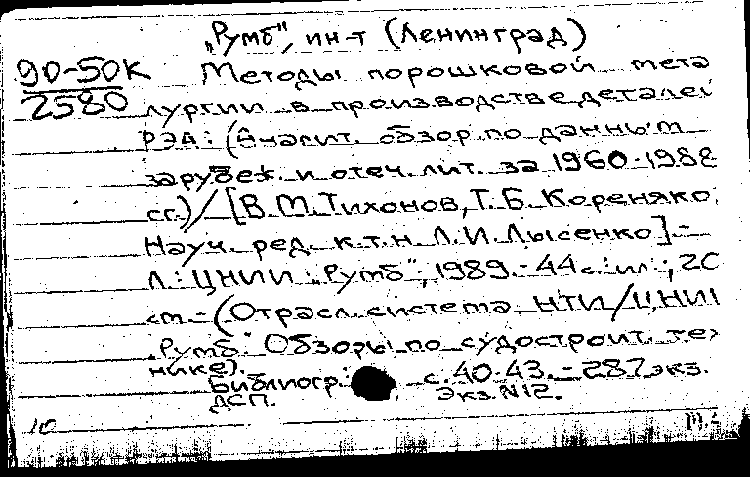 „Румб", ин-т (Ленинград)
90-50К Методы порошковой мета
2580 лургии в производстве деталей
РЭА: (Аналит. обзор по данным
зарубеж. и отеч. лит. за 1960-1988
гг.) / [В.М. Тихонов, Т.Б. Кореняко;
Науч. ред. к.т.н. Л.И. Лысенко]. -
Л.: ЦНИИ „Румб", 1989. - 44 с.: ил.; 20
см. - (Отрасл. система НТИ/ЦНИИ
„Румб". Обзоры по судостроит. тех
нике).
Библиогр.: с. 40-43. - 287 экз.
ДСП. Экз. N12.
10